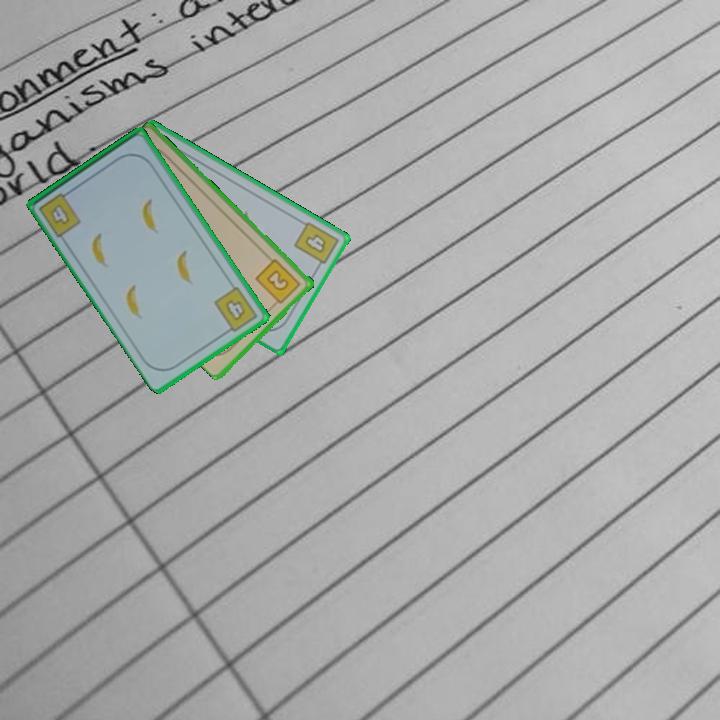 onment: a
ganisms inter
orld.
4
4
2
4